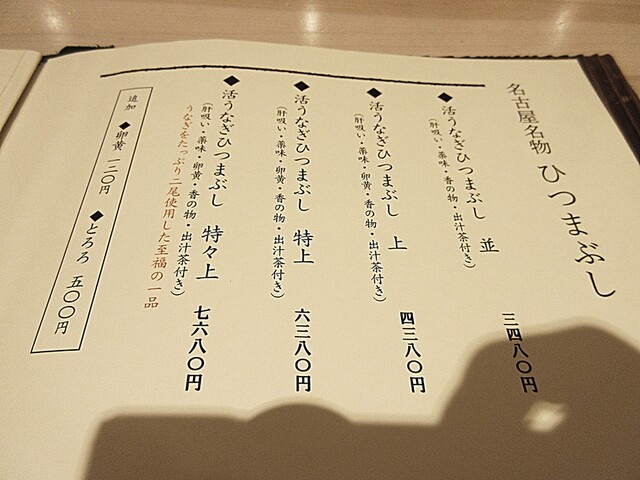 名古屋名物 ひつまぶし
◆活うなぎひつまぶし 並 三四八〇円
(肝吸い・薬味・卵黄・香の物・出汁茶付き)
◆活うなぎひつまぶし 上 四三八〇円
(肝吸い・薬味・卵黄・香の物・出汁茶付き)
◆活うなぎひつまぶし 特上 六三八〇円
(肝吸い・薬味・卵黄・香の物・出汁茶付き)
◆活うなぎひつまぶし 特々上 七六八〇円
(肝吸い・薬味・卵黄・香の物・出汁茶付き)
うなぎをたっぷり二尾使用した至福の一品
追加 ◆卵黄 一二〇円 ◆とろろ 五〇〇円